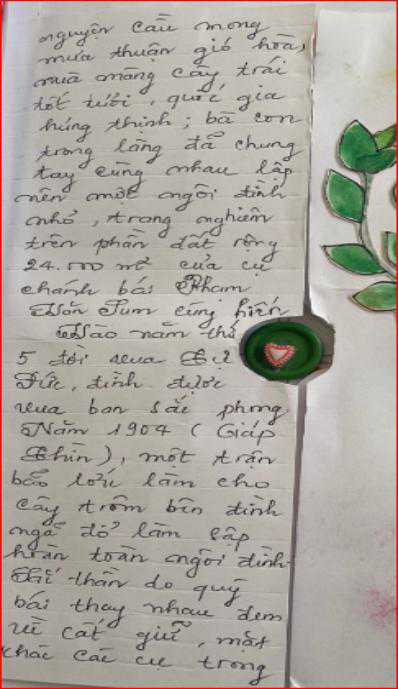 nguyện cầu mong
mưa thuận gió hòa,
mùa màng cây trái
tốt tươi, quốc gia
hưng thịnh; bà con
trong làng đã chung
tay cùng nhau lập
nên một ngôi đình
nhỏ, trang nghiêm
trên phần đất rộng
24.000 m² của cụ
chánh bái Phạm
Văn Tum cúng hiến
Vào năm thứ
5 đời vua Tự
Đức, đình được
vua ban sắc phong
Năm 1904 (Giáp
Thìn), một trận
bão lớn làm cho
cây trôm bên đình
ngã đổ làm sập
hoàn toàn ngôi đình
Sắc thần do quý
bái thay nhau đem
về cất giữ, mặt
khác các cụ trong